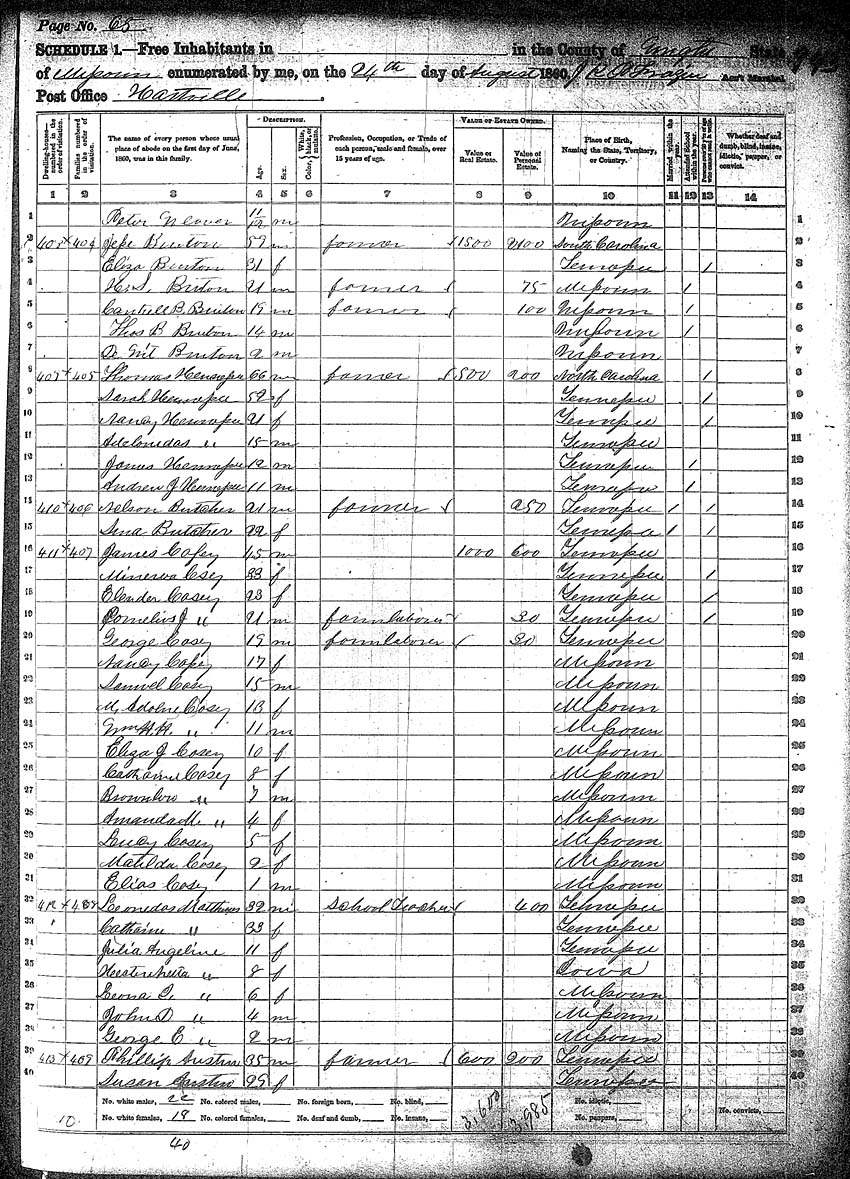 Page No. 65
SCHEDULE 1.—Free Inhabitants in in the County of State
of Missouri enumerated by me, on the 24th day of August 1860. Ass't Marshal
Post Office Hartville.
DESCRIPTION. VALUE OF ESTATE OWNED.
Dwelling-houses—numbered in the order of visitation. Families numbered in the order of visitation. The name of every person whose usual place of abode on the first day of June, 1860, was in this family. Age Sex. Color, White, black, or mulatto. Profession, Occupation, or Trade of each person, male and female, over 15 years of age. Value of Real Estate. Value of Personal Estate. Place of Birth, Naming the State, Territory, or Country. Married within the year. Attended School within the year. Whether deaf and dumb, blind, insane, idiotic, pauper, or convict.
1 2 3 4 5 6 7 8 9 10 11 12 13 14
1 Peter Weaver 11/12 m Missouri 1
2 404 Jesse Burton 57 m farmer 1500 2100 South Carolina 2
3 Eliza Burton 31 f Tennessee / 3
4 Burton 21 m farmer 75 Missouri 1 4
5 Cantrell B. Burton 19 m farmer 100 Missouri 1 5
6 Thos B Burton 14 m Missouri 1 6
7 De Witt Burton 2 m Missouri 7
8 409 405 Thomas Hennessee 66 m farmer 500 200 North Carolina / 8
9 Sarah Hennessee 52 f Tennessee / 9
10 Nancy Hennessee 21 f Tennessee / 10
11 " 15 m Tennessee 11
12 James Hennessee 12 m Tennessee 1 12
13 Andrew J Hennessee 11 m Tennessee 1 13
14 410 406 Nelson Butcher 21 m farmer 250 Tennessee 1 / 14
15 Butcher 22 f Tennessee 1 / 15
16 411 407 James Casey 45 m 1000 600 Tennessee 16
17 Minerva Casey 33 f Tennessee / 17
18 Elender Casey 23 f Tennessee / 18
19 Cornelius J " 21 m farm laborer 30 Tennessee / 19
20 George Casey 19 m farm laborer 30 Tennessee 20
21 Nancy Casey 17 f Missouri 21
22 Samuel Casey 15 m Missouri 22
23 M. Adoline Casey 13 f Missouri 23
24 Wm H.H. " 11 m Missouri 24
25 Eliza J Casey 10 f Missouri 25
26 Catharine Casey 8 f Missouri 26
27 Brownlow " 7 m Missouri 27
28 Amanda M. " 4 f Missouri 28
29 Lucy Casey 5 f Missouri 29
30 Matilda Casey 2 f Missouri 30
31 Elias Casey 1 m Missouri 31
32 412 Leonidas Matthews 32 m School Teacher 400 Tennessee 32
33 Catharine " 33 f Tennessee 33
34 Julia Angeline 11 f Tennessee 34
35 " 8 f Iowa 35
36 Leona " 6 f Missouri 36
37 John D " 4 m Missouri 37
38 George E " 2 m Missouri 38
39 413 409 Phillip Austin 35 m farmer 600 200 Tennessee 39
40 Susan Austin 25 f Tennessee 40
No. white males, 22 No. colored males, No. foreign born, No. blind, 3,600 3,985 No. idiotic, No. convicts,
10 No. white females, 18 No. colored females, No. deaf and dumb, No. insane, No. paupers,
40